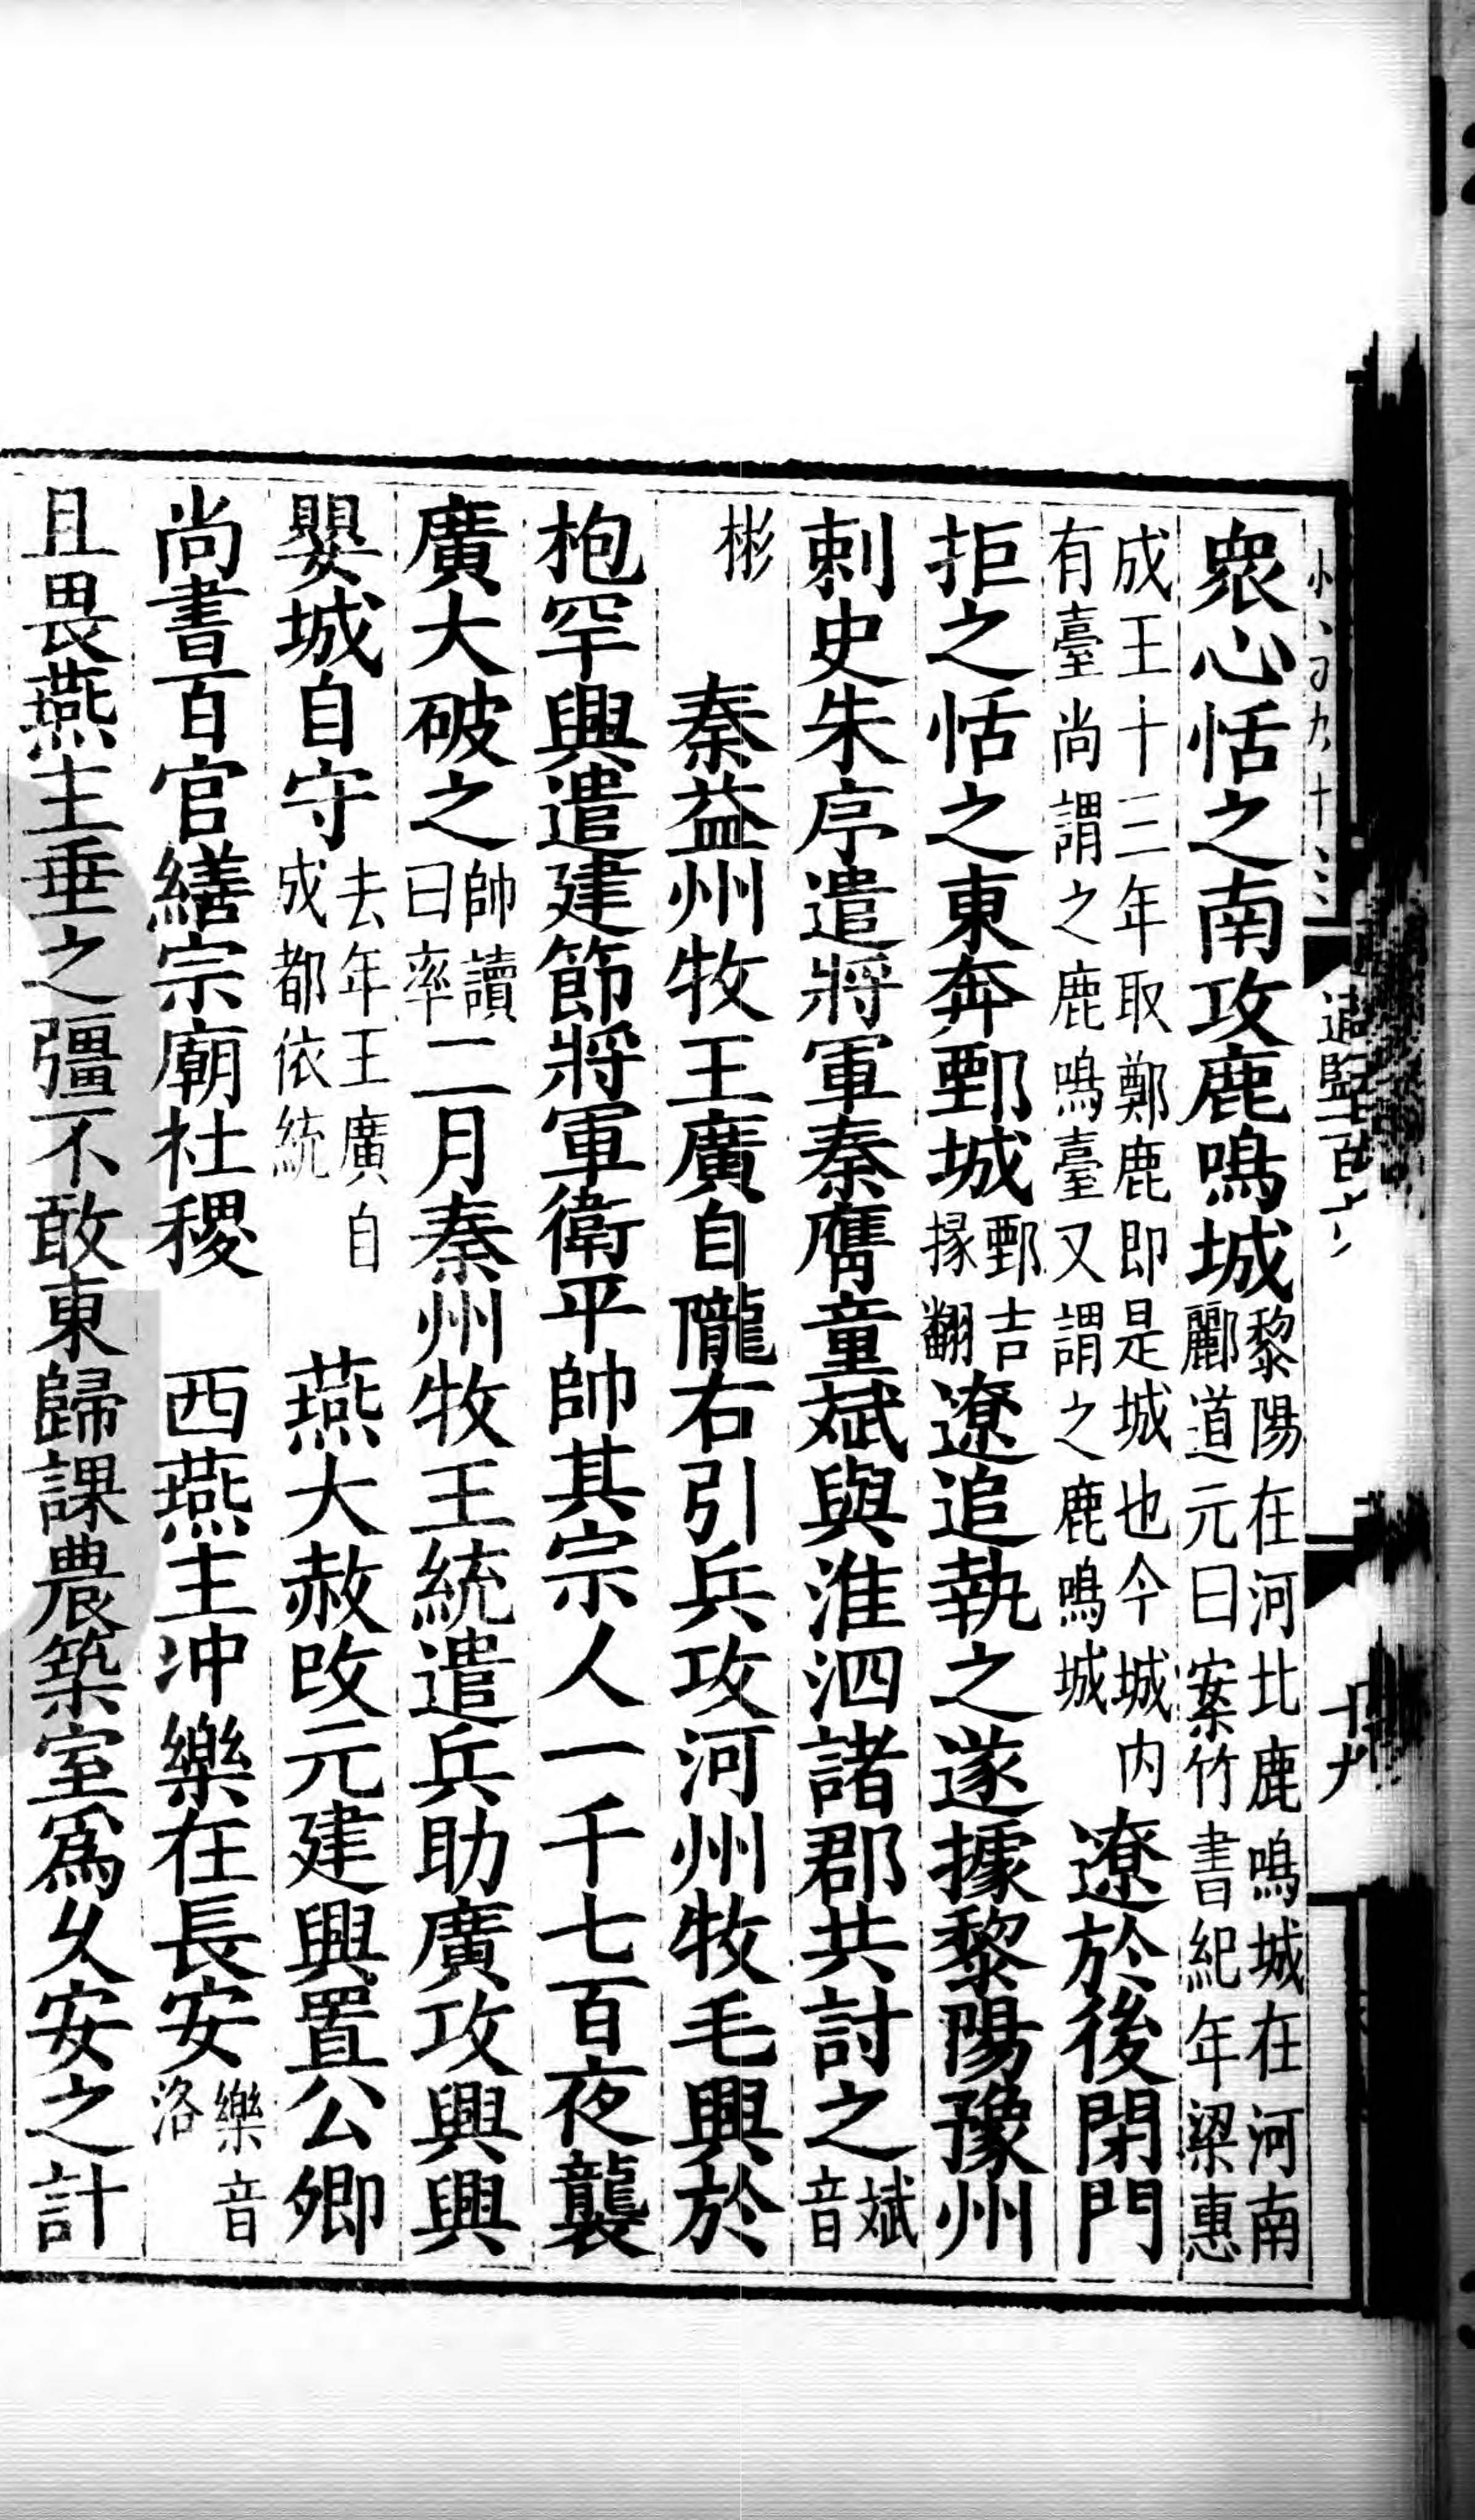 眾心恬之南攻鹿鳴城黎陽在河北鹿鳴城在河南酈道元曰案竹書紀年梁惠
成王十三年取鄭鹿即是城也今城内有臺尚謂之鹿鳴臺又謂之鹿鳴城遼於後閉門
拒之恬之東奔鄄城鄄吉掾翻遼追執之遂據黎陽豫州
刺史朱序遣將軍秦膺童斌與淮泗諸郡共討之斌音
彬　秦益州牧王廣自隴右引兵攻河州牧毛興於
枹罕興遣建節將軍衛平帥其宗人一千七百夜襲
廣大破之帥讀曰率二月秦州牧王統遣兵助廣攻興興
嬰城自守去年王廣自成都依統　燕大赦改元建興置公卿
尚書百官繕宗廟社稷　西燕主沖樂在長安樂音洛
且畏燕主垂之彊不敢東歸課農築室爲久安之計